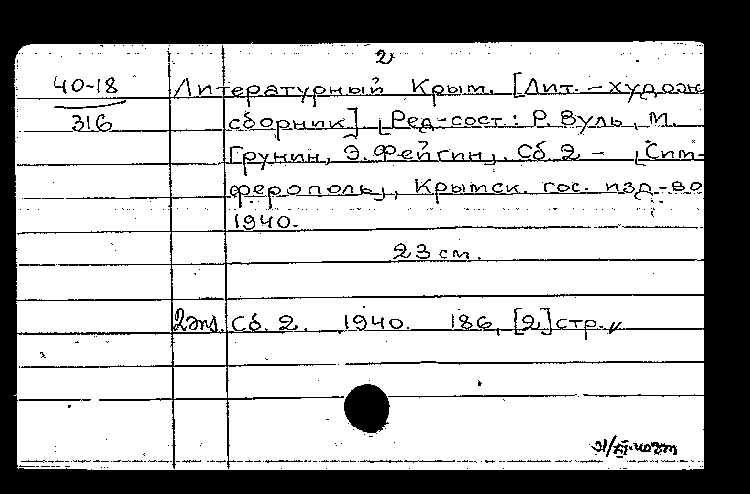 2
40-18
316
Литературный Крым. [Лит. - худож
сборник] [Ред-сост: Р. Вуль, М.
Грунин, Э. Фейгин]. Сб. 2 - [Сим-
ферополь], Крымск. гос. изд-во
1940.
23 см.
2 экз. Сб. 2. 1940. 186, [2] стр.